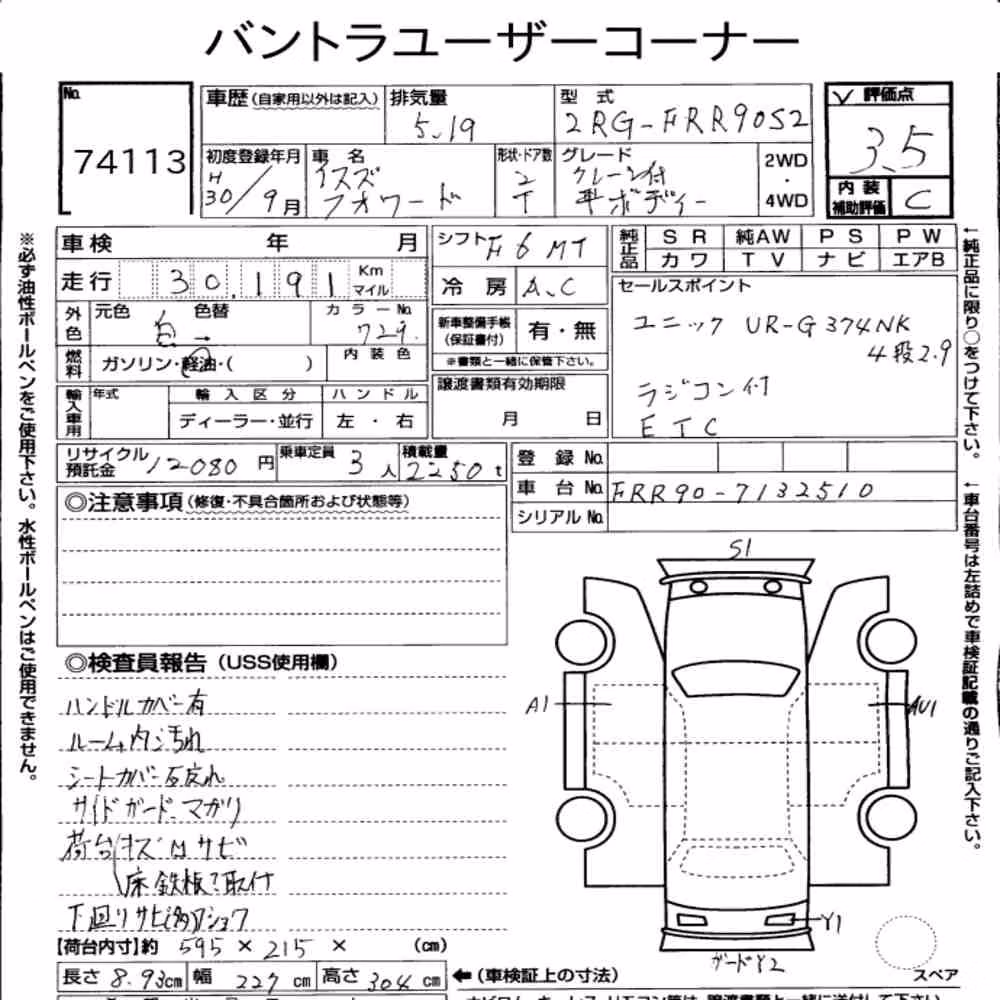 バントラユーザーコーナー
No. 74113
車歴 (自家用以外は記入) 排気量 5.19 型式 2RG-FRR90S2
評価点 3.5
内装補助評価 C
初度登録年月 H30/9月 車名 イスズ フォワード 形状・ドア数 2 T グレード クレーン付 平ボディー 2WD・4WD
車検 年 月
走行 30,191 Km マイル
外色 元色 白 色替 → カラーNo. 729
燃料 ガソリン・軽油・( ) 内装色
輸入車用 年式 輸入区分 ディーラー・並行 ハンドル 左・右
シフト F6 MT
冷房 A.C
新車整備手帳 (保証書付) 有・無
※書類と一緒に保管下さい。
譲渡書類有効期限
月 日
純正品 SR 純AW PS PW
カワ TV ナビ エアB
セールスポイント
ユニック UR-G374NK
4段2.9
ラジコン付
ETC
リサイクル預託金 12080円 乗車定員 3人 積載量 2250t
登録No.
車台No. FRR90-7132510
シリアルNo.
◎注意事項 (修復・不具合箇所および状態等)
◎検査員報告 (USS使用欄)
ハンドルカバー有
ルーム内シ汚れ
シートカバー
サイドガードマガリ
荷台キズMサビ
床鉄板取付
下回りサビ(多)
【荷台内寸】約 595 × 215 × (cm)
長さ 8.93cm 幅 227cm 高さ 304cm ←(車検証上の寸法)
S1
A1
AU1
Y1
ガードY2
スペア
※必ず油性ボールペンをご使用下さい。水性ボールペンはご使用できません。
←純正品に限り○をつけて下さい。
←車台番号は左詰めで車検証記載の通りご記入下さい。